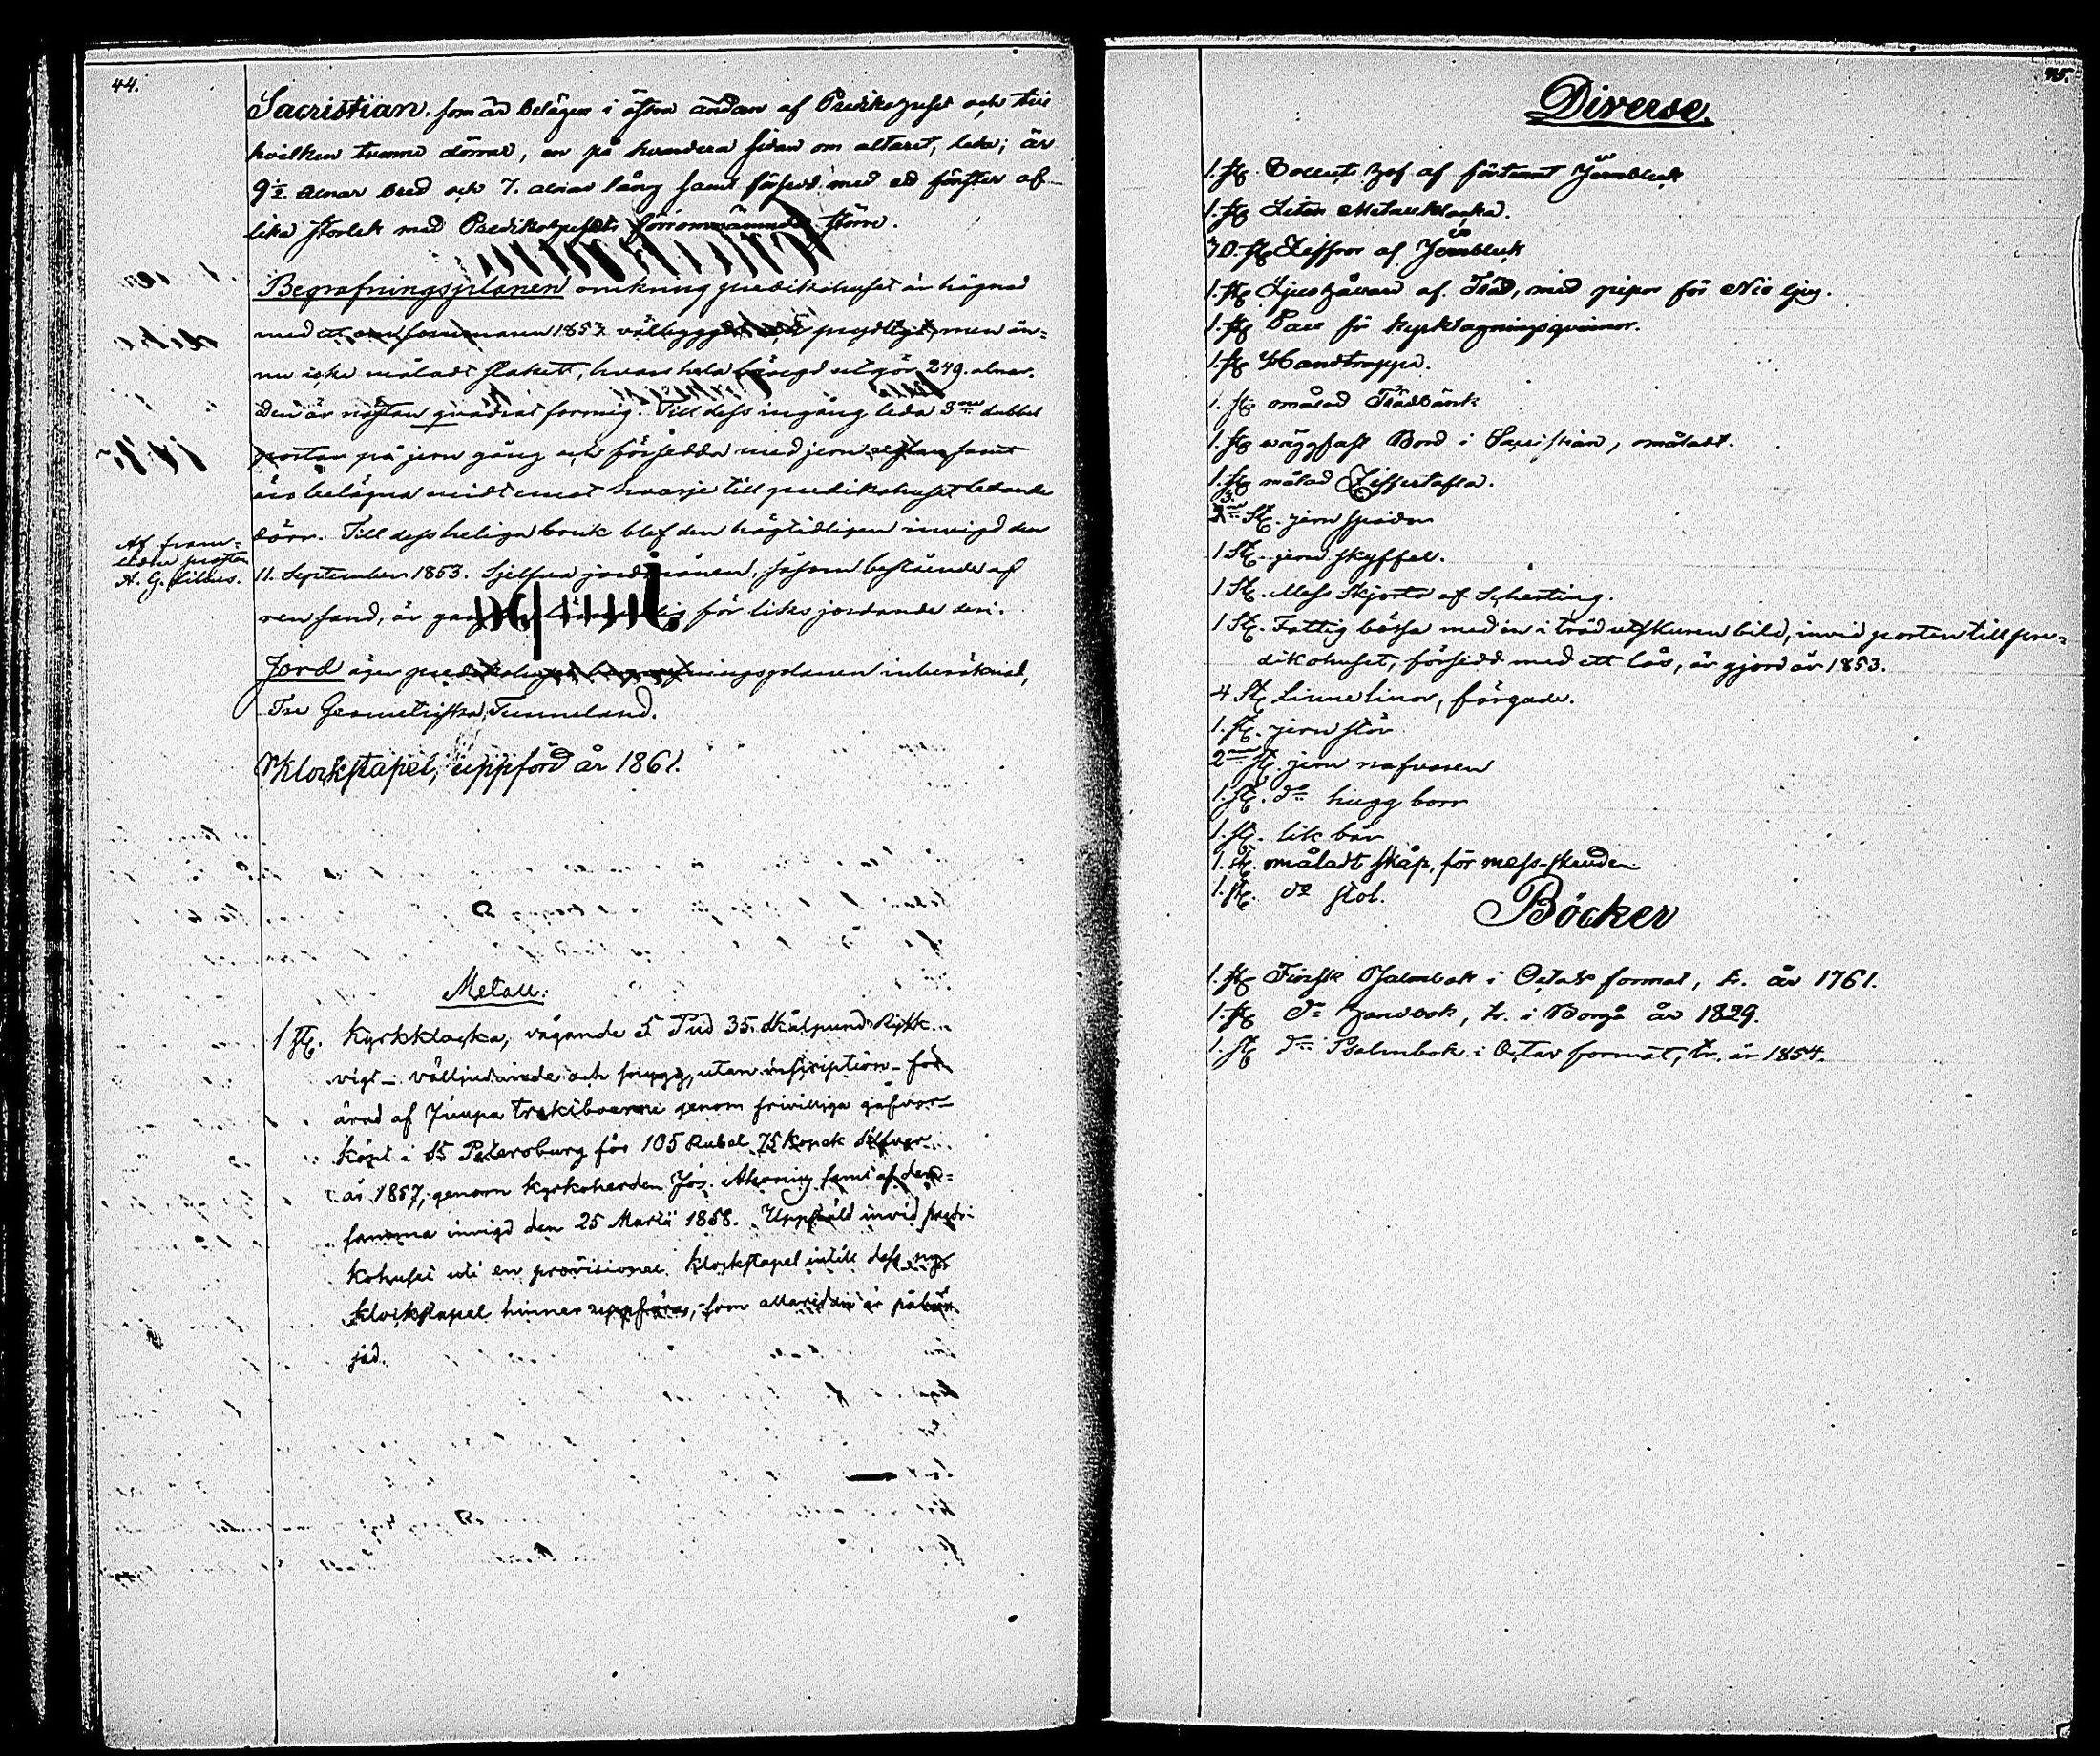 44.
Sacristian. som är belägen i östra ändan af Predikohuset och till
hvilken tvenne dörrar, en på hvardera sidan om altaret, leda; är
9½ alnar bred och 7. alnar lång samt försedd med ett fönster af
lika storlek med Predikohusets förromnämnde större.
Begrafningsplanen omkring predikohuset är hägnad
med ett om sommaren 1857 välbyggdt och prydligt, men än-
nu icke måladt stakett, hvars hela längd utgör 249. alnar.
Den är nästan quadrat formig. Till dess ingång leda 3ne dubbel
portar på jern gång och försedda med jern samt
äro belägna midt emot hvarje till predikohuset ledande
dörr. Till dess heliga bruk blef den högtidligen invigd den
Af fram-
lidne prosten
A. G.
11. September 1853. Sjelfva jordmånen, såsom bestående af
ren sand, är för liks jordande deri.
Jord äger predikohuset begrafningsplanen inberäknad,
Tre Geometriska Tunneland.
Klockstapel, uppförd år 1861.
Metall.
1 st. Kyrkklocka, vägande 5 Pud 35. skålpund Rysk
vigt – välljudande och snygg, utan inscription – för-
ärad af Juupa träskiboerne genom frivilliga gåfvor –
köpt i St Petersburg för 105 Rubel 75 kopek silfver
år 1857, genom kyrkoherden Jos. samt af den-
samma invigd den 25 Martii 1858. Uppställd invid predi-
kohuset uti en provisionel klockstapel intill dess ny
klockstapel hinner uppföras, som allaredan är påbör-
jad.
45.
Diverse.
1. st. Collect Haf af förtennt Jernbleck
1. st. Liten Metallklocka.
70. st. Ziffror af Jernbleck
1. st. Ljushållare af Träd, med pipor för Nio ljus.
1. st. Pall för kyrktagningsqvinnor.
1. st. Handtrappa.
1. st. omålad Trädbänk
1. st. väggfast Bord i Sacristian, omåladt.
1. st. målad Ziffertafla.
3. st. jern spador
1 St. jern skyffel.
1 St. Mess Skjorta af Scherting.
1 St. Fattig bössa med en i träd utskuren bild, invid porten till pre-
dikohuset, försedd med ett lås, är gjord år 1853.
4 St. Linne linor, färgade.
1. st. jern stör
2ne st. jern nafvaren
1. st. do hugg borr
1. st. lik bår
1. st. omåladt skåp, för mess-skruden
1. st. do stol.
Böcker
1. st. Finsk Psalmbok i Octav format, tr. år 1761.
1. st. do Handbok, tr. i Borgå år 1829.
1. st. do Psalmbok i Octav format, tr. år 1854.